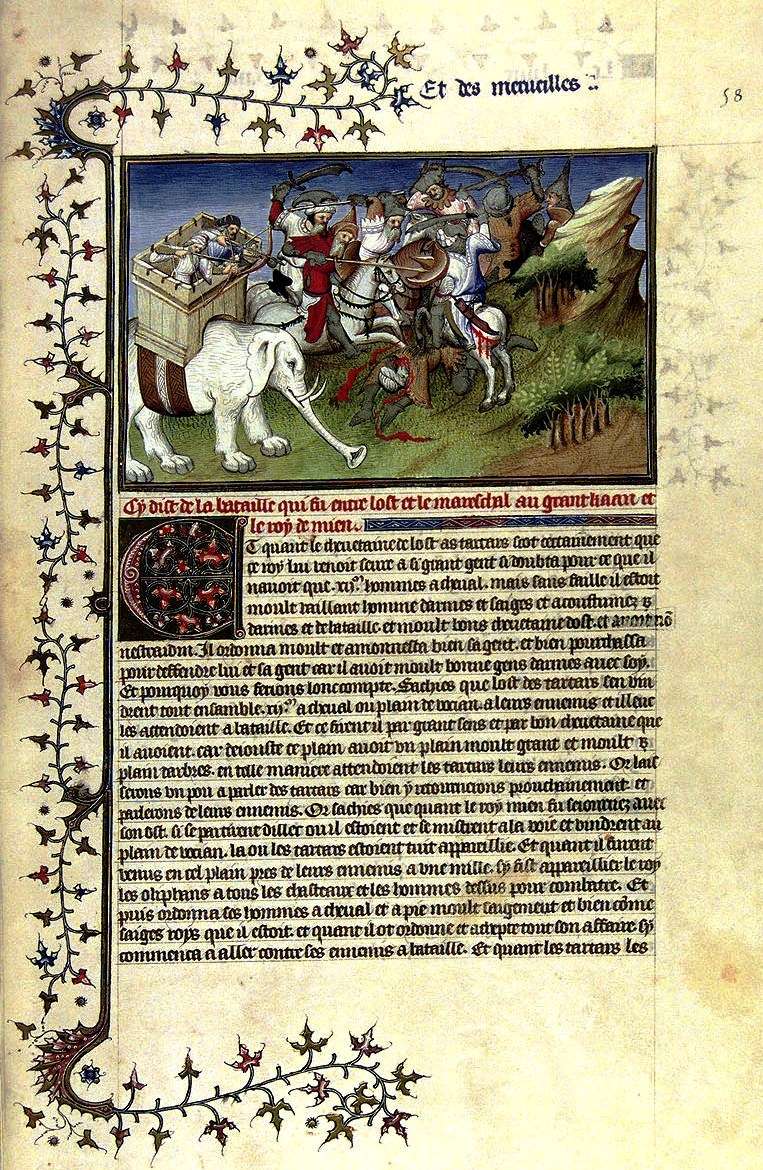 Et des merueilles
58
Cy dist de la bataille qui fu entre lost et le mareschal au grant kaan et
le roy de mien.
Et quant le cheuetaine de lost as tartars scot certainement que
ce roy lui venoit seure a si grant gent si doubta pour ce que il
nauoit que .xij. hommes a cheual. mais sans faille il estoit
moult vaillant homme darmes et saiges et acoustumez
darmes et de bataille et moult bons cheuetaine dost. et
Il ordonna moult et amonnesta bien sa gent. et bien pourchassa
pour deffendre lui et sa gent car il auoit moult bonne gens darmes auec soy.
Et pourquoy vous feroms lonc compte. Sachies que lost des tartars sen vin
drent tout ensamble .xij. a cheual ou plain de vocian. a leurs ennemis et illeuc
les attendoient a bataille. Et ce firent il par grant sens et par bon cheuetaine que
il auoient. car de iouste ce plain auoit vn plain moult grant et moult
plain darbres. en telle maniere attendoient les tartars leurs ennemis. Or lais
serons vn pou a parler des tartars car bien y retournerons prouchainement. et
parlerons de leurs ennemis. Or sachies que quant le roy mien fu seiournez auec
son ost. si se partirent dillec ou il estoient et se mistrent a la voie et vindrent au
plain de vocian. la ou les tartars estoient tuit appareillie. Et quant il furent
venus en cel plain pres de leurs ennemis a vne mille. sy fist appareillier le roy
les oliphans a tous les chasteaux et les hommes dessus pour combatre. Et
puis ordonna ses hommes a cheual et a pie moult saigement et bien come
saiges roys que il estoit. et quant il ot ordonne et tout son affaire sy
commenca a aller contre ses ennemis a bataille. Et quant les tartars les